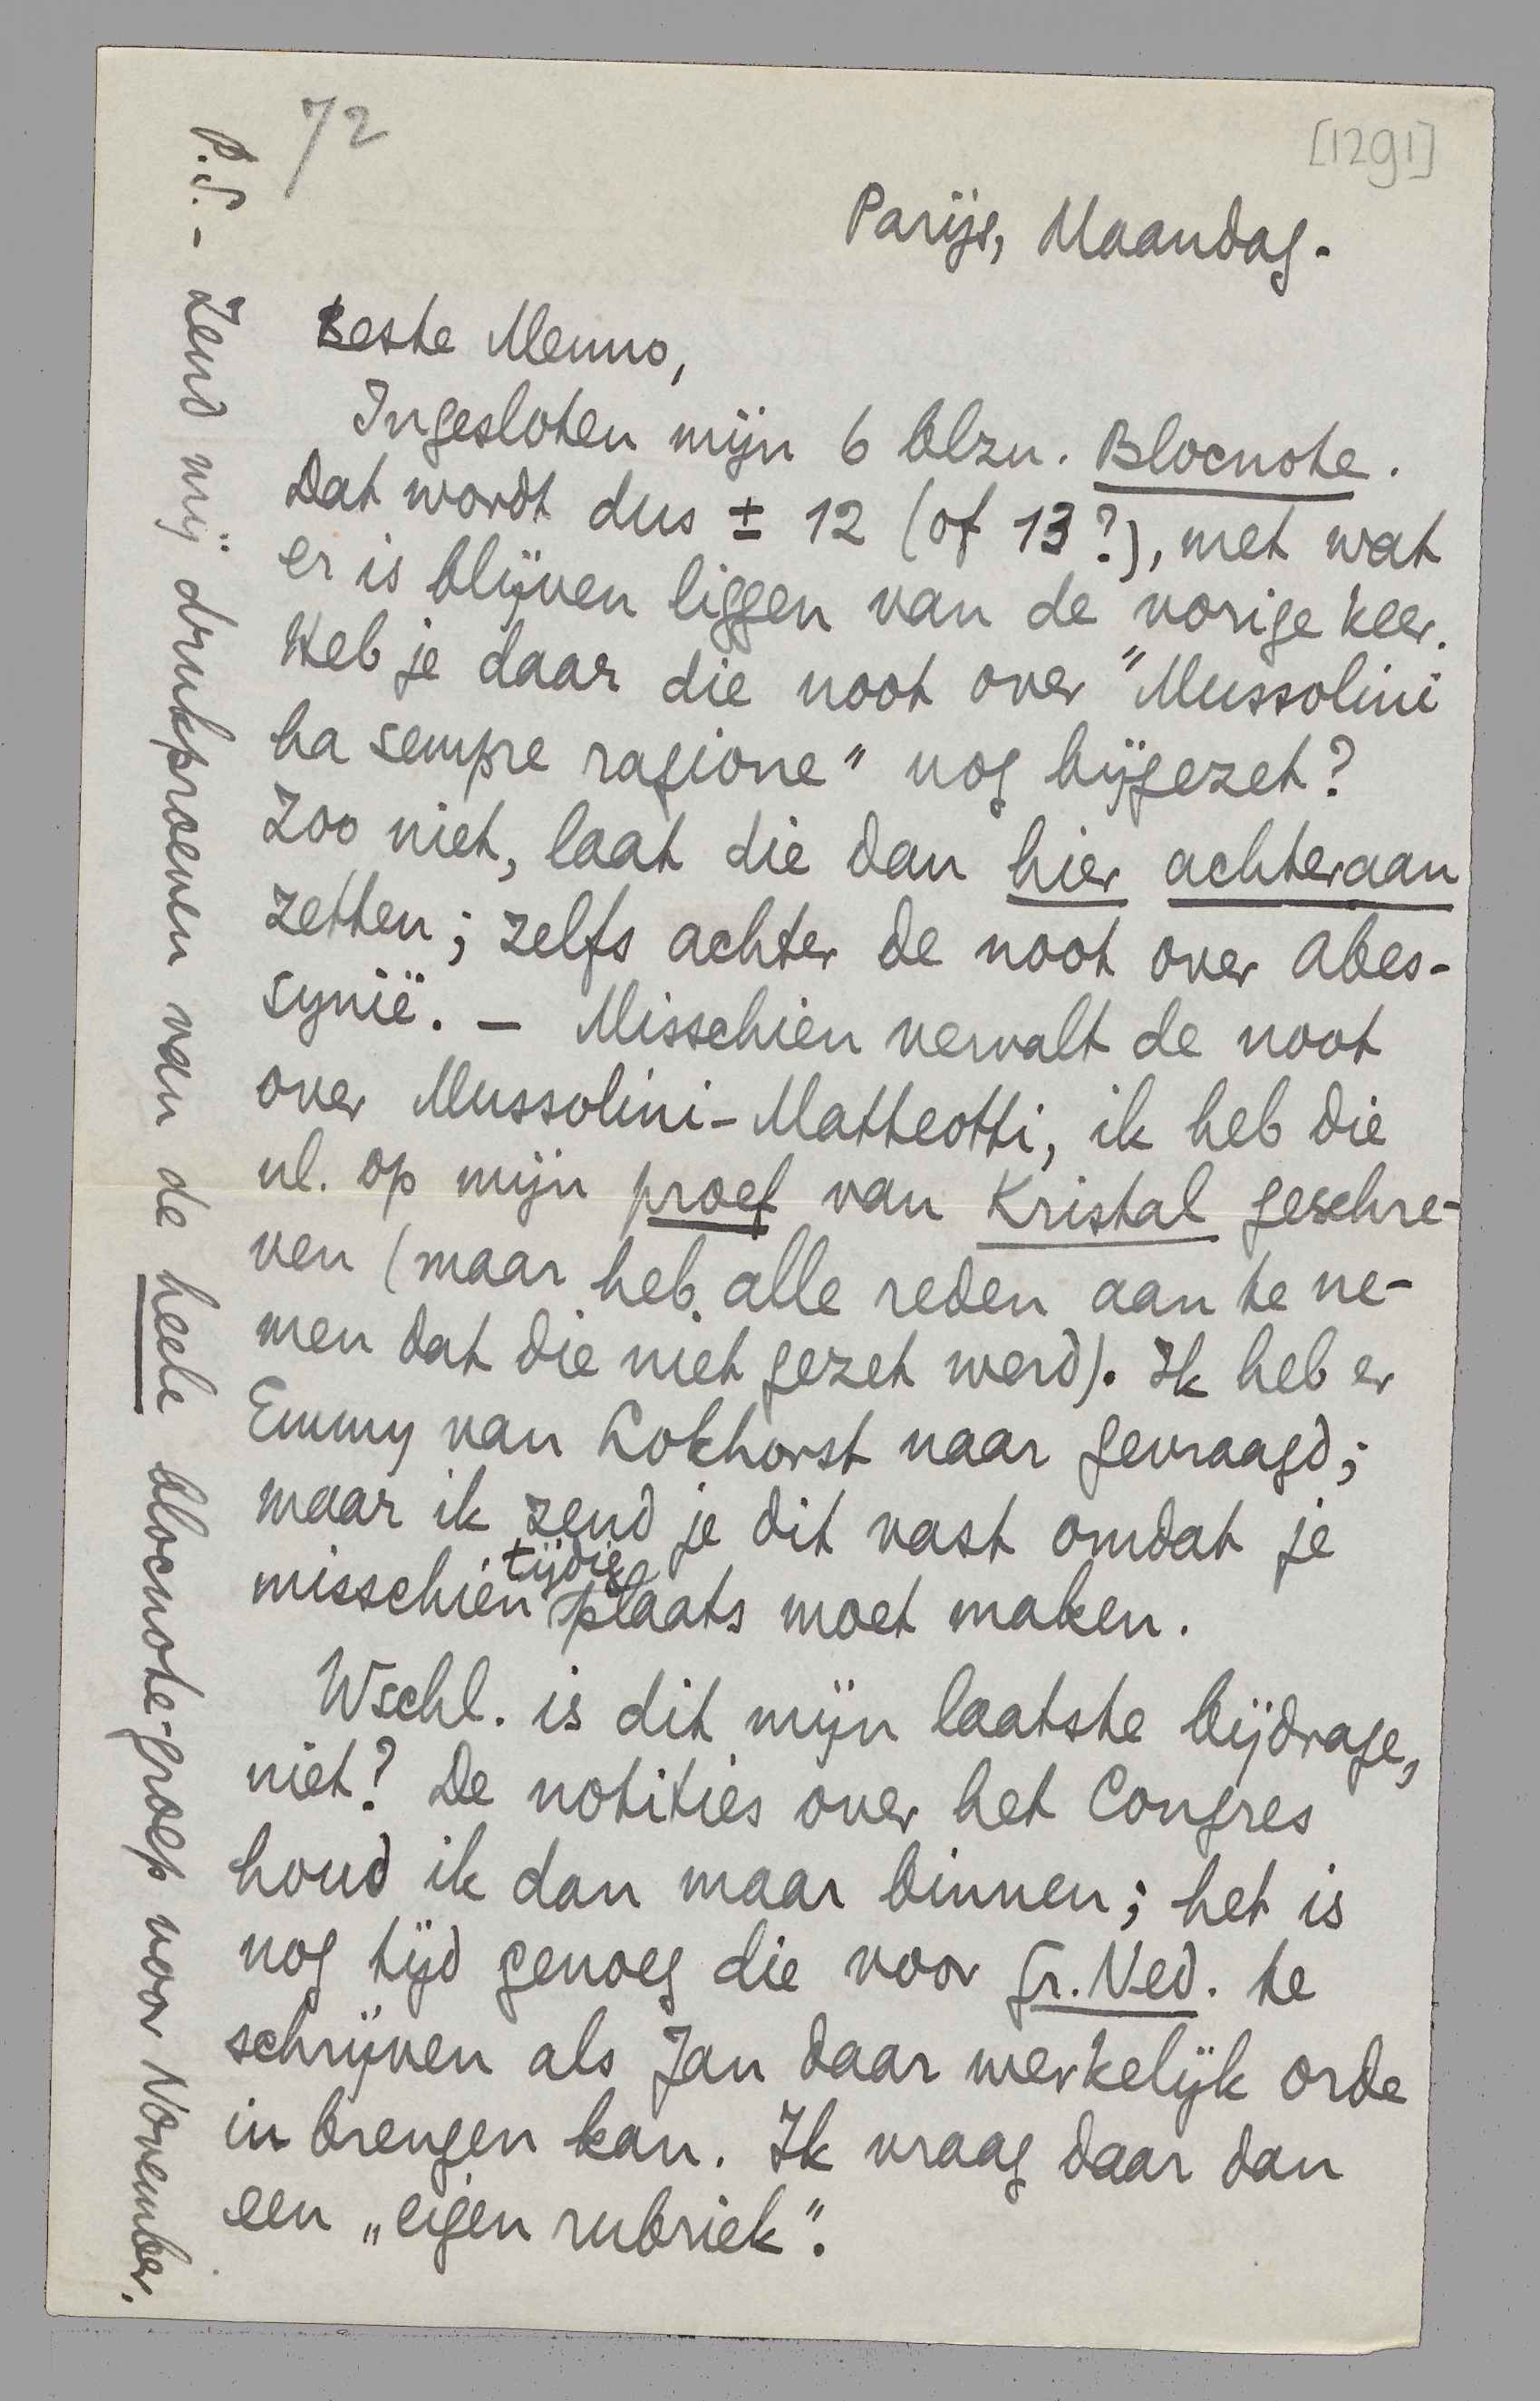 72
[1291]
Parijs, Maandag.
Beste Menno,
Ingesloten mijn 6 blzn. Blocnote.
Dat wordt dus ± 12 (of 13?), met wat
er is blijven liggen van de vorige keer.
Heb je daar die noot over "Mussolini
ha sempre ragione" nog bijgezet?
Zoo niet, laat die dan hier achteraan
zetten; zelfs achter de noot over Abes-
synië. — Misschien vervalt de noot
over Mussolini-Matteotti, ik heb die
nl. op mijn proef van Kristal geschre-
ven (maar heb alle reden aan te ne-
men dat die niet gezet werd). Ik heb er
Emmy van Lokhorst naar gevraagd;
maar ik zend je dit vast omdat je
misschien tijdig plaats moet maken.
Wschl. is dit mijn laatste bijdrage,
niet? De notities over het Congres
houd ik dan maar binnen; het is
nog tijd genoeg die voor Gr. Ned. te
schrijven als Jan daar werkelijk orde
in brengen kan. Ik vraag daar dan
een „eigen rubriek".
P.S. - Zend mij drukproeven van de heele blocnote-groep voor November.